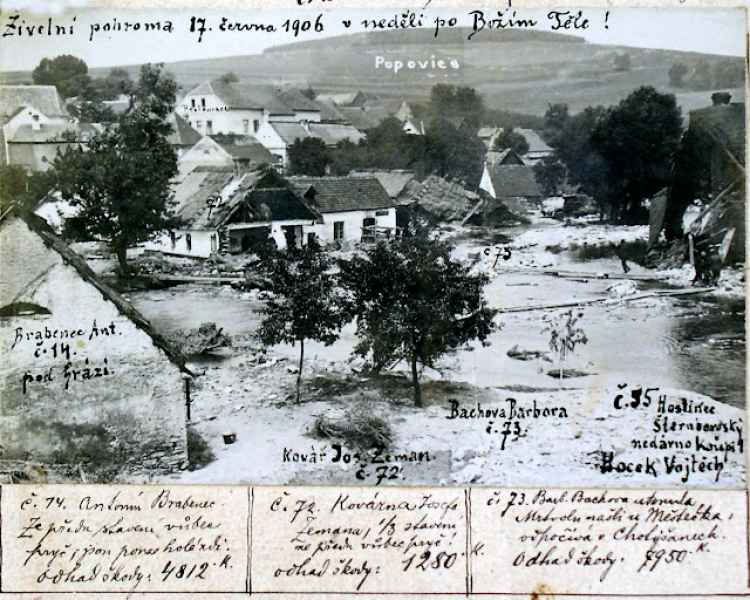 Živelní pohroma 17. června 1906 v neděli po Božím Těle !
Popovice
Restaurace
č. 73
Brabenec Ant.
č. 14.
pod Hrází.
Kovář Jos. Zeman.
č. 72
Bachova Barbora
č. 73.
č. 35 Hostinec
Šternberský
nedávno koupil
Hocek Vojtěch
č. 14. Antonín Brabenec
Ze předu stavení vůbec
pryč, jsou pouze holé zdi.
Odhad škody: 4812 K.
č. 72. Kovárna Josefa
Zemana, 1/3 stavení
ze předu vůbec pryč!
odhad škody: 1280 K.
č. 73. Barb. Bachova utonula,
Mrtvolu našli u Městečka,
odpočívá v Chotýšanech.
Odhad škody: 7950 K.